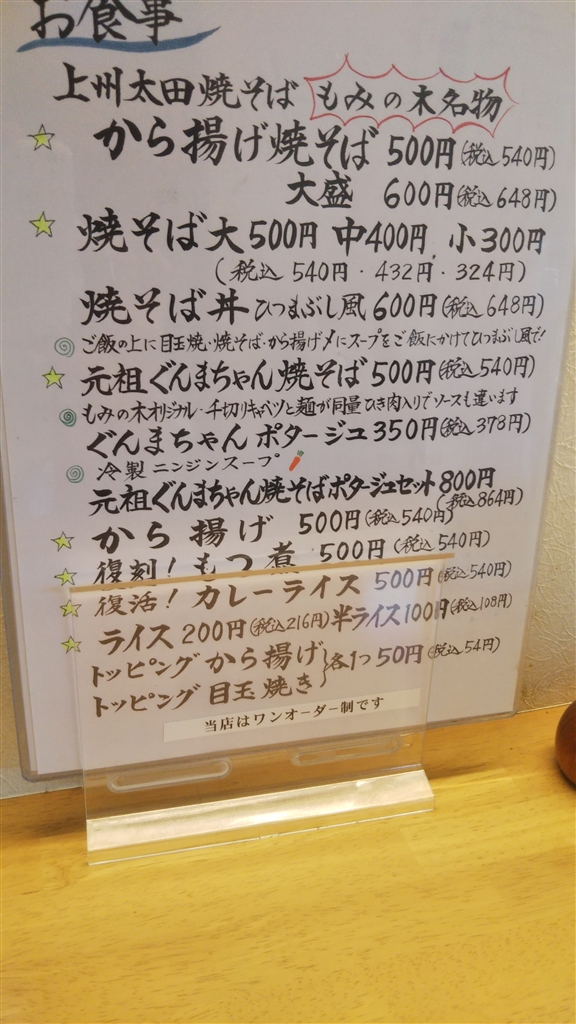 お食事
上州太田焼そば もみの木名物
から揚げ焼そば 500円(税込540円)
大盛 600円(税込648円)
焼そば大500円 中400円 小300円
(税込540円・432円・324円)
焼そば丼 ひつまぶし風 600円(税込648円)
ご飯の上に目玉焼・焼そば・から揚げ〆にスープをご飯にかけてひつまぶし風で!
元祖ぐんまちゃん焼そば500円(税込540円)
もみの木オリジナル・千切りキャベツと麺が同量ひき肉入りでソースも違います
ぐんまちゃんポタージュ350円(税込378円)
冷製ニンジンスープ
元祖ぐんまちゃん焼そばポタージュセット800円
(税込864円)
から揚げ 500円(税込540円)
復刻!もつ煮 500円(税込540円)
復活!カレーライス 500円(税込540円)
ライス200円(税込216円)半ライス100円(税込108円)
トッピング から揚げ
トッピング 目玉焼き }各1つ50円(税込54円)
当店はワンオーダー制です